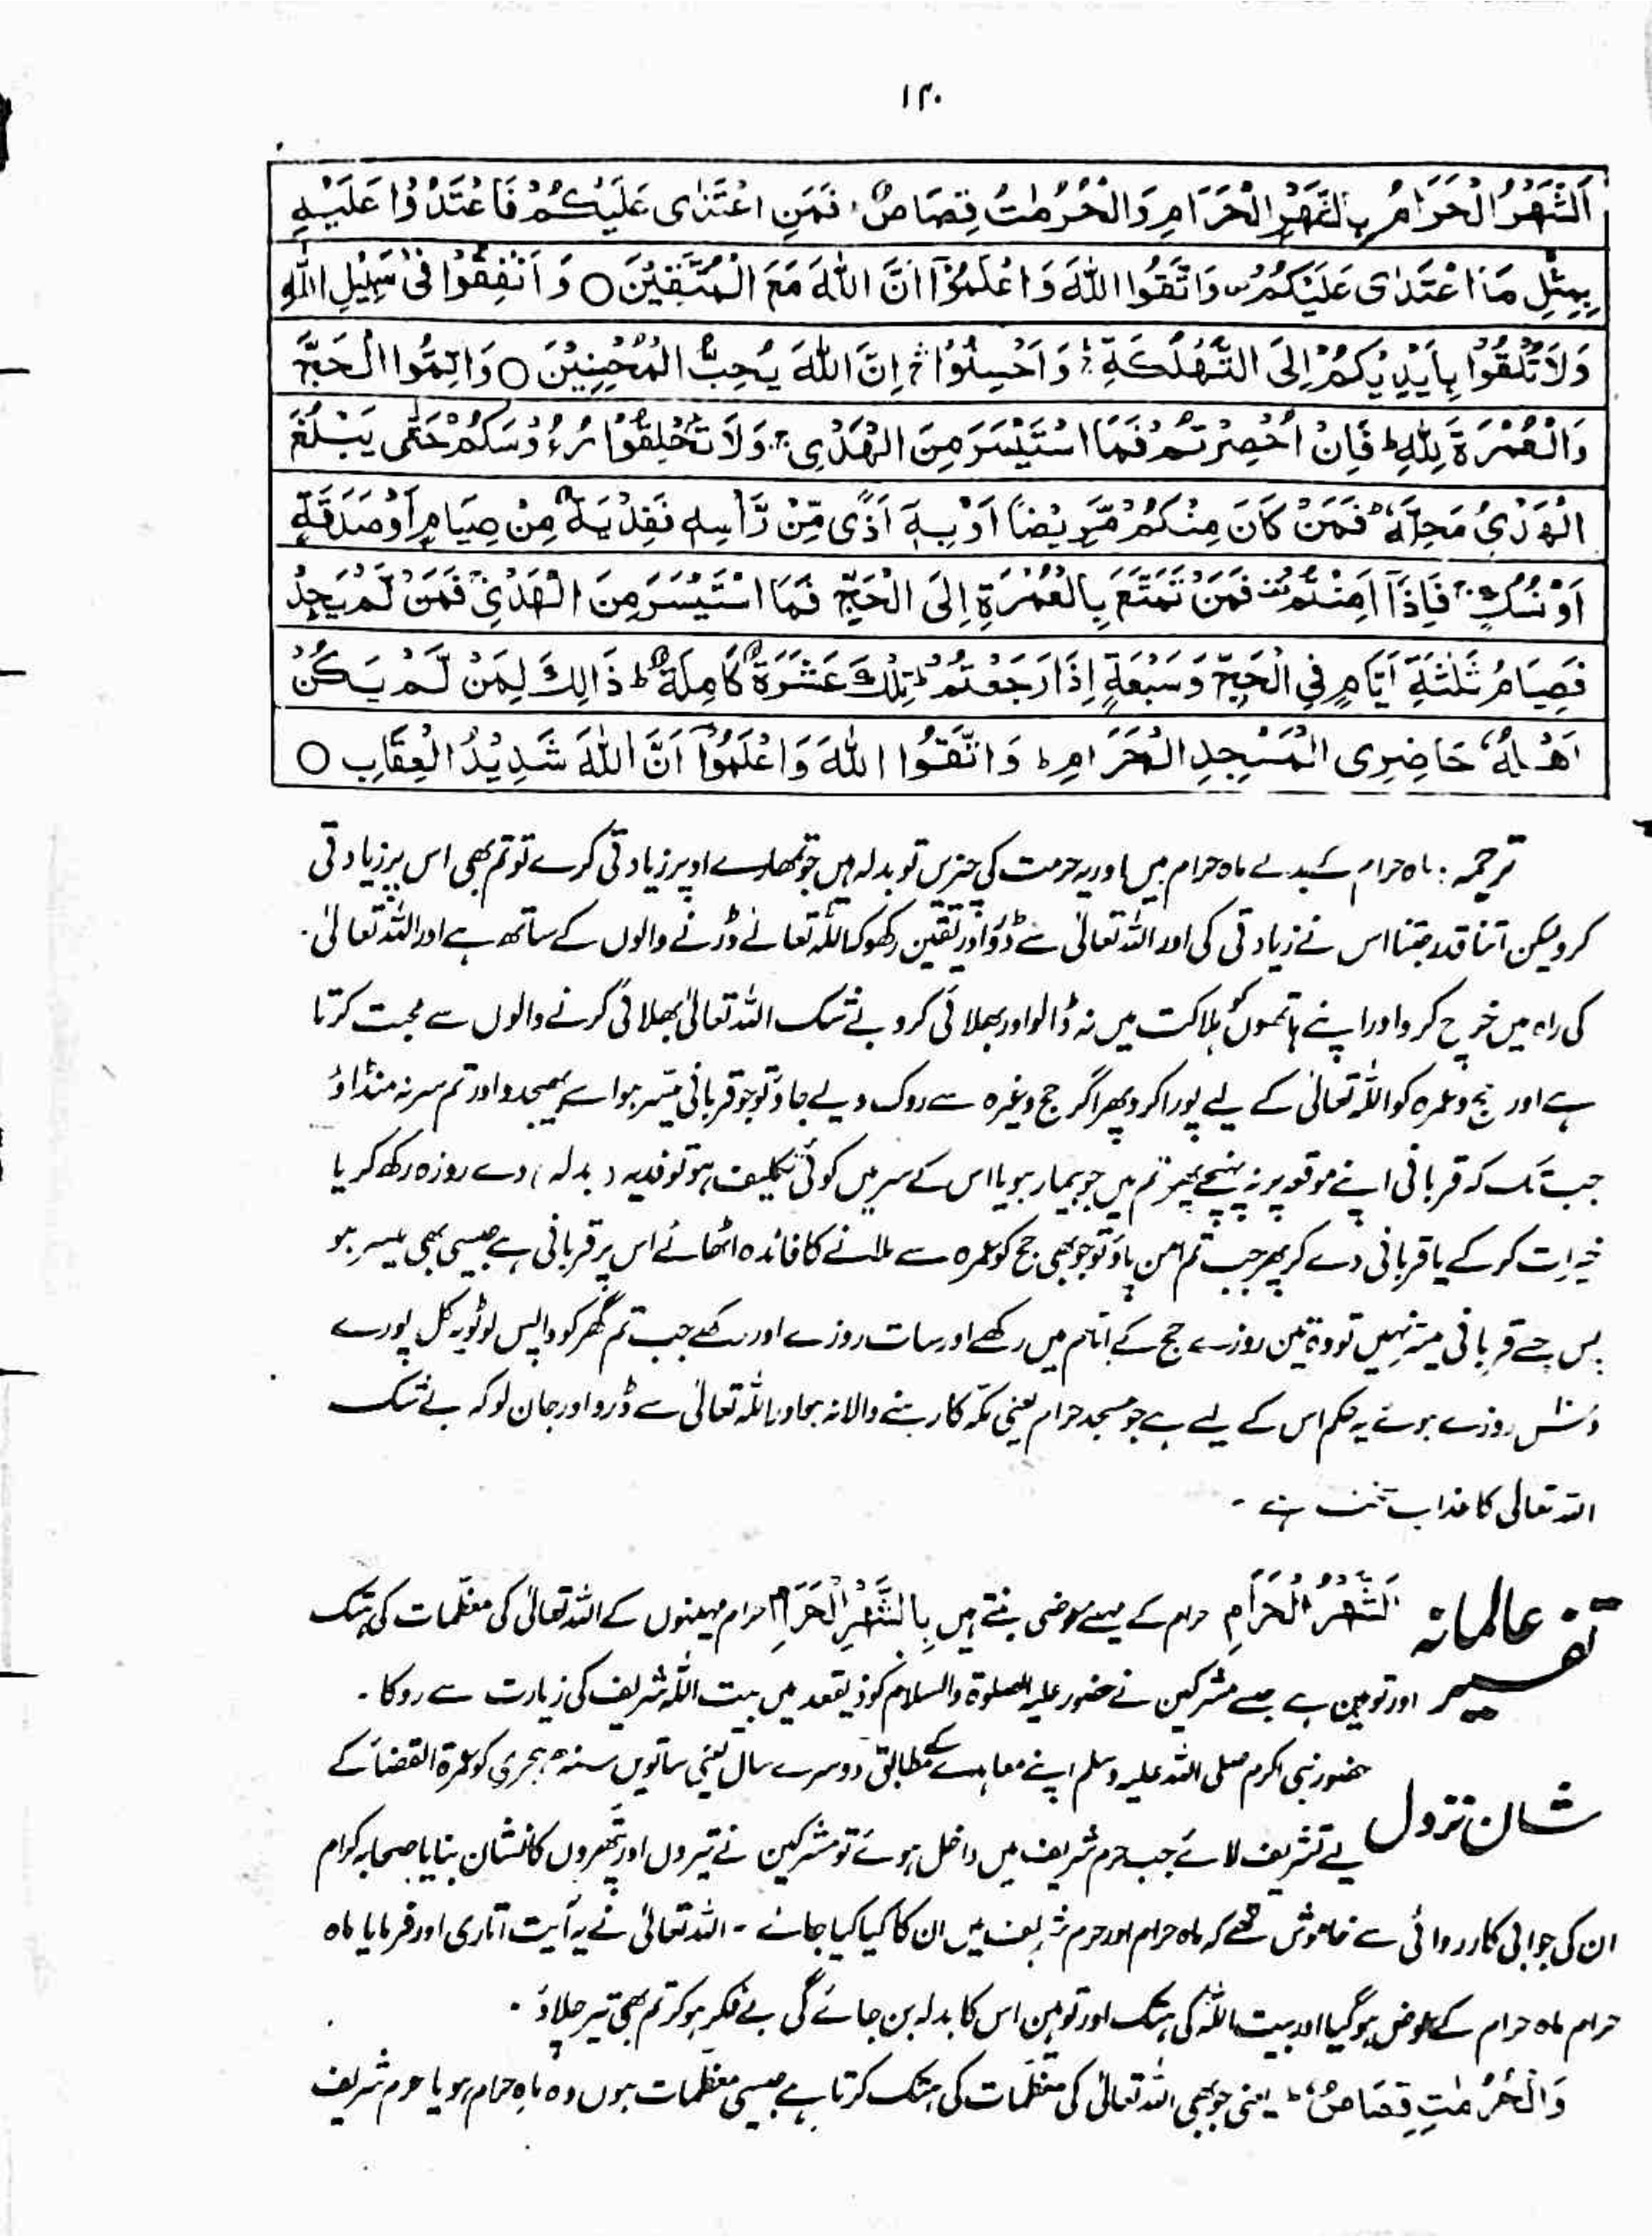 ۱۴۰
اَلشَّهْرُ الْحَرَامُ بِالشَّهْرِ الْحَرَامِ وَالْحُرُمٰتُ قِصَاصٌ ؕ فَمَنِ اعْتَدٰى عَلَيْكُمْ فَاعْتَدُوْا عَلَيْهِ
بِمِثْلِ مَا اعْتَدٰى عَلَيْكُمْ ۪ وَاتَّقُوا اللّٰهَ وَاعْلَمُوْٓا اَنَّ اللّٰهَ مَعَ الْمُتَّقِيْنَ ○ وَاَنْفِقُوْا فِىْ سَبِيْلِ اللّٰهِ
وَلَا تُلْقُوْا بِاَيْدِيْكُمْ اِلَى التَّهْلُكَةِ ۛ وَاَحْسِنُوْا ۛ اِنَّ اللّٰهَ يُحِبُّ الْمُحْسِنِيْنَ ○ وَاَتِمُّوا الْحَجَّ
وَالْعُمْرَةَ لِلّٰهِ ؕ فَاِنْ اُحْصِرْتُمْ فَمَا اسْتَيْسَرَ مِنَ الْهَدْىِ ۚ وَلَا تَحْلِقُوْا رُءُوْسَكُمْ حَتّٰى يَبْلُغَ
الْهَدْىُ مَحِلَّهٗ ؕ فَمَنْ كَانَ مِنْكُمْ مَّرِيْضًا اَوْ بِهٖٓ اَذًى مِّنْ رَّاْسِهٖ فَفِدْيَةٌ مِّنْ صِيَامٍ اَوْ صَدَقَةٍ
اَوْ نُسُكٍ ۚ فَاِذَآ اَمِنْتُمْ ۥ فَمَنْ تَمَتَّعَ بِالْعُمْرَةِ اِلَى الْحَجِّ فَمَا اسْتَيْسَرَ مِنَ الْهَدْىِ ۚ فَمَنْ لَّمْ يَجِدْ
فَصِيَامُ ثَلٰثَةِ اَيَّامٍ فِى الْحَجِّ وَسَبْعَةٍ اِذَا رَجَعْتُمْ ؕ تِلْكَ عَشَرَةٌ كَامِلَةٌ ؕ ذَالِكَ لِمَنْ لَّمْ يَكُنْ
اَهْلُهٗ حَاضِرِى الْمَسْجِدِ الْحَرَامِ ؕ وَاتَّقُوا اللّٰهَ وَاعْلَمُوْٓا اَنَّ اللّٰهَ شَدِيْدُ الْعِقَابِ ○
ترجمہ : ماہ حرام کے بدلے ماہ حرام ہیں اور یہ حرمت کی چیزیں تو بدلہ ہیں جو تمہارے اوپر زیادتی کرے تو تم بھی اس پر زیادتی
کرو لیکن اتنا قدر جتنا اس نے زیادتی کی اور اللہ تعالٰی سے ڈرو اور یقین رکھو کہ اللہ تعالے ڈرنے والوں کے ساتھ ہے اور اللہ تعالٰی
کی راہ میں خرچ کرو اور اپنے ہاتھوں کو ہلاکت میں نہ ڈالو اور بھلائی کرو بے شک اللہ تعالٰی بھلائی کرنے والوں سے محبت کرتا
ہے اور حج و عمرہ کو اللہ تعالٰی کے لیے پورا کرو پھر اگر حج وغیرہ سے روک دیے جاؤ تو جو قربانی میسر ہو اسے بھیجدو اور تم سر نہ منڈاؤ
جب تک کہ قربانی اپنے موقعہ پر نہ پہنچے پھر تم میں جو بیمار ہو یا اس کے سر میں کوئی تکلیف ہو تو فدیہ ( بدلہ ) دے روزہ رکھ کر یا
خیرات کر کے یا قربانی دے کر پھر جب تم امن پاؤ تو جو بھی حج کو عمرہ سے ملانے کا فائدہ اٹھائے اس پر قربانی ہے جیسی بھی میسر ہو
پس جسے قربانی میسر نہیں تو وہ تین روزے حج کے ایام میں رکھے اور سات روزے اور رکھے جب تم گھر کو واپس لوٹو یہ کل پورے
دس روزے ہوئے یہ حکم اس کے لیے ہے جو مسجد حرام یعنی مکہ کا رہنے والا نہ ہو اور اللہ تعالٰی سے ڈرو اور جان لو کہ بے شک
اللہ تعالٰی کا عذاب سخت ہے ۔
تفسیر عالمانہ اَلشَّهْرُ الْحَرَامِ حرام کے مہینے عوض بنتے ہیں بِالشَّهْرِ الْحَرَامِ حرام مہینوں کے اللہ تعالٰی کی معظمات کی ہتک
اور توہین ہے جسے مشرکین نے حضور علیہ الصلوۃ والسلام کو ذیقعد میں بیت اللہ شریف کی زیارت سے روکا ۔
شان نزول حضور نبی اکرم صلی اللہ علیہ وسلم اپنے معاہدے کے مطابق دوسرے سال یعنی ساتویں سنہ ہجری کو عمرۃ القضاء کے
لیے تشریف لائے جب حرم شریف میں داخل ہوئے تو مشرکین نے تیروں اور پتھروں کا نشان بنایا صحابہ کرام
ان کی جوابی کارروائی سے خاموش تھے کہ ماہ حرام اور حرم شریف میں ان کا کیا کیا جائے ۔ اللہ تعالٰی نے یہ آیت اتاری اور فرمایا ماہ
حرام ماہ حرام کے عوض ہو گیا اور بیت اللہ کی ہتک اور توہین اس کا بدلہ بن جائے گی بے فکر ہو کر تم بھی تیر چلاؤ ۔
وَالْحُرُمٰتِ قِصَاصٌ ؕ یعنی جو بھی اللہ تعالٰی کی معظمات کی ہتک کرتا ہے جیسی معظمات ہوں وہ ماہِ حرام ہو یا حرم شریف